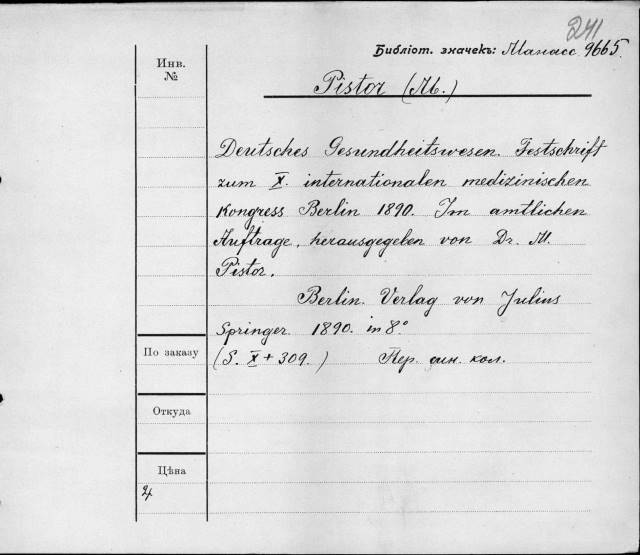 241
Библіот. значекъ: Манасс 9665.
Инв.
№
Pistor (M.)
Deutsches Gesundheitswesen. Festschrift
zum X. internationalen medizinischen
Kongress Berlin 1890. Im amtlichen
Auftrage, herausgegeben von Dr. M.
Pistor.
Berlin. Verlag von Julius
Springer. 1890. in 8°
По заказу
(S. X + 309.) Кер. син. кол.
Откуда
Цѣна